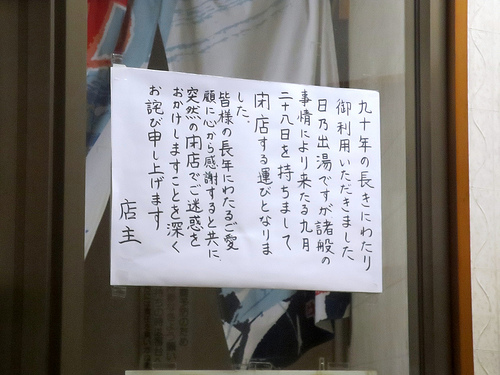 九十年の長きにわたり
御利用いただきました
日乃出湯ですが諸般の
事情により来たる九月
二十八日を持ちまして
閉店する運びとなりま
した。
皆様の長年にわたるご愛
顧に心から感謝すると共に、
突然の閉店でご迷惑を
おかけしますことを深く
お詫び申し上げます
店主